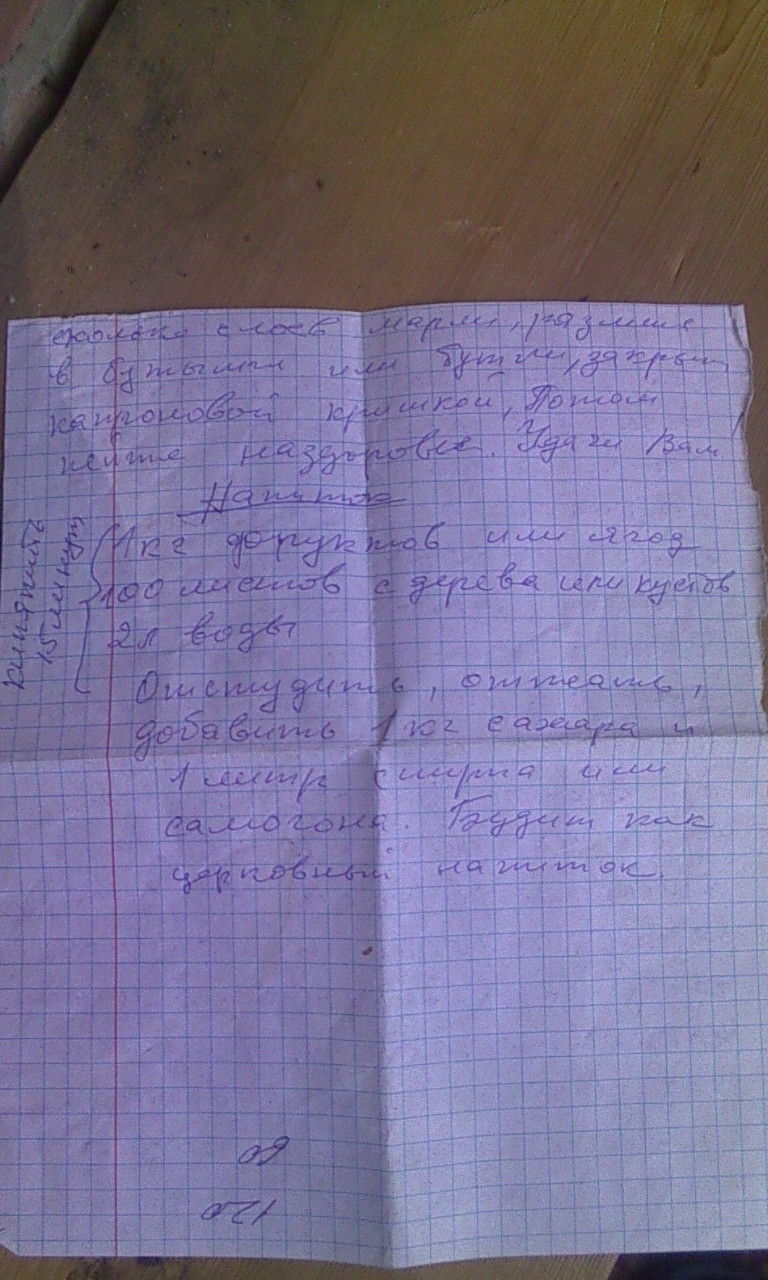 сколько слоев марли, разлить
в бутылки или бутли, закрыть
капроновой кришкой, Потом
пейте наздоровье. Удачи Вам
Напиток
1 кг фруктов или ягод
100 листов с дерева или кустов
2л воды
кипятить
15 минут
Отстудить, отжать,
добавить 1 кг сахара и
1 литр спирта или
самогона. Будит как
церковный напиток.
60
120